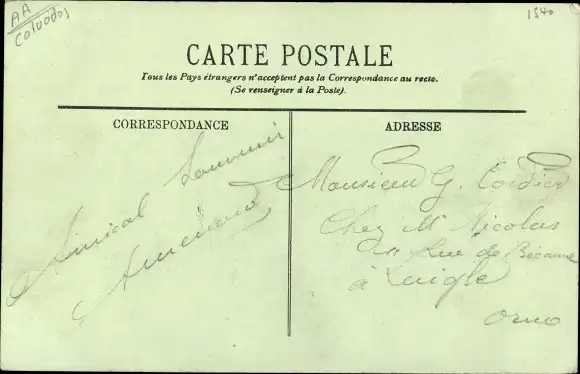 AA
Calvados
1540
CARTE POSTALE
Tous les Pays étrangers n'acceptent pas la Correspondance au recto.
(Se renseigner à la Poste).
CORRESPONDANCE
Amical Souvenir
ADRESSE
Monsieur G. Cordier
Chez Mr Nicolas
Rue de Bécanne
à Laigle
Orne